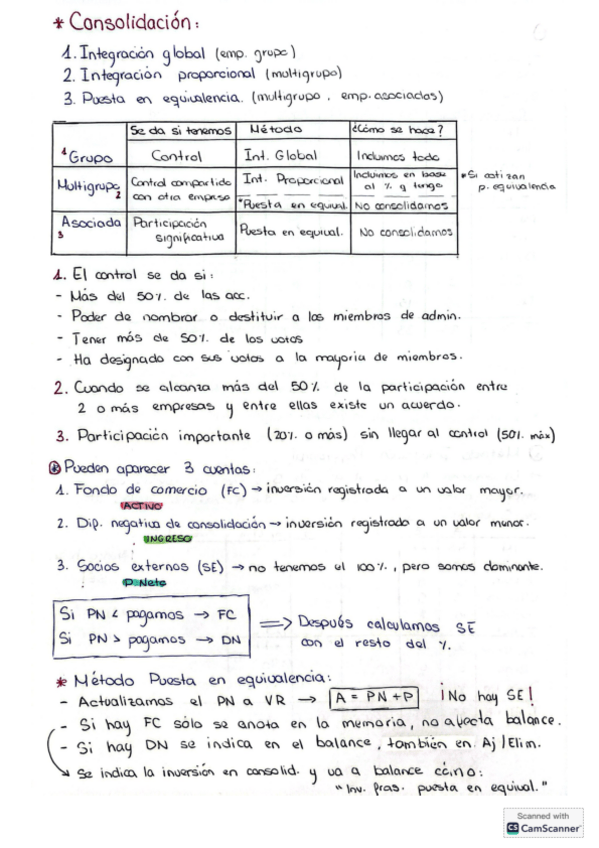 * Consolidación:
1. Integración global (emp. grupo)
2. Integración proporcional (multigrupo)
3. Puesta en equivalencia. (multigrupo, emp. asociadas)
Se da si tenemos Método ¿Cómo se hace?
1 Grupo Control Int. Global Incluimos todo
Multigrupo 2 Control compartido con otra empresa Int. Proporcional Incluimos en base al % q tengo
*Puesta en equival. No consolidamos
* Si cotizan p. equivalencia
Asociada 3 Participación significativa Puesta en equival. No consolidamos
1. El control se da si:
- Más del 50% de las acc.
- Poder de nombrar o destituir a los miembros de admin.
- Tener más de 50% de los votos
- Ha designado con sus votos a la mayoría de miembros.
2. Cuando se alcanza más del 50% de la participación entre
2 o más empresas y entre ellas existe un acuerdo.
3. Participación importante (20% o más) sin llegar al control (50% máx)
Pueden aparecer 3 cuentas:
1. Fondo de comercio (FC) → inversión registrada a un valor mayor.
ACTIVO
2. Dif. negativa de consolidación → inversión registrado a un valor menor.
INGRESO
3. Socios externos (SE) → no tenemos el 100%, pero somos dominante.
P. Neto
Si PN < pagamos → FC
Si PN > pagamos → DN
⇒ Después calculamos SE
con el resto del %.
* Método Puesta en equivalencia:
- Actualizamos el PN a VR → A = PN + P ¡No hay SE!
- Si hay FC sólo se anota en la memoria, no afecta balance.
- Si hay DN se indica en el balance, también en Aj/Elim.
→ Se indica la inversión en consolid. y va a balance cómo:
"Inv. fras. puesta en equival."
Scanned with
CS CamScanner